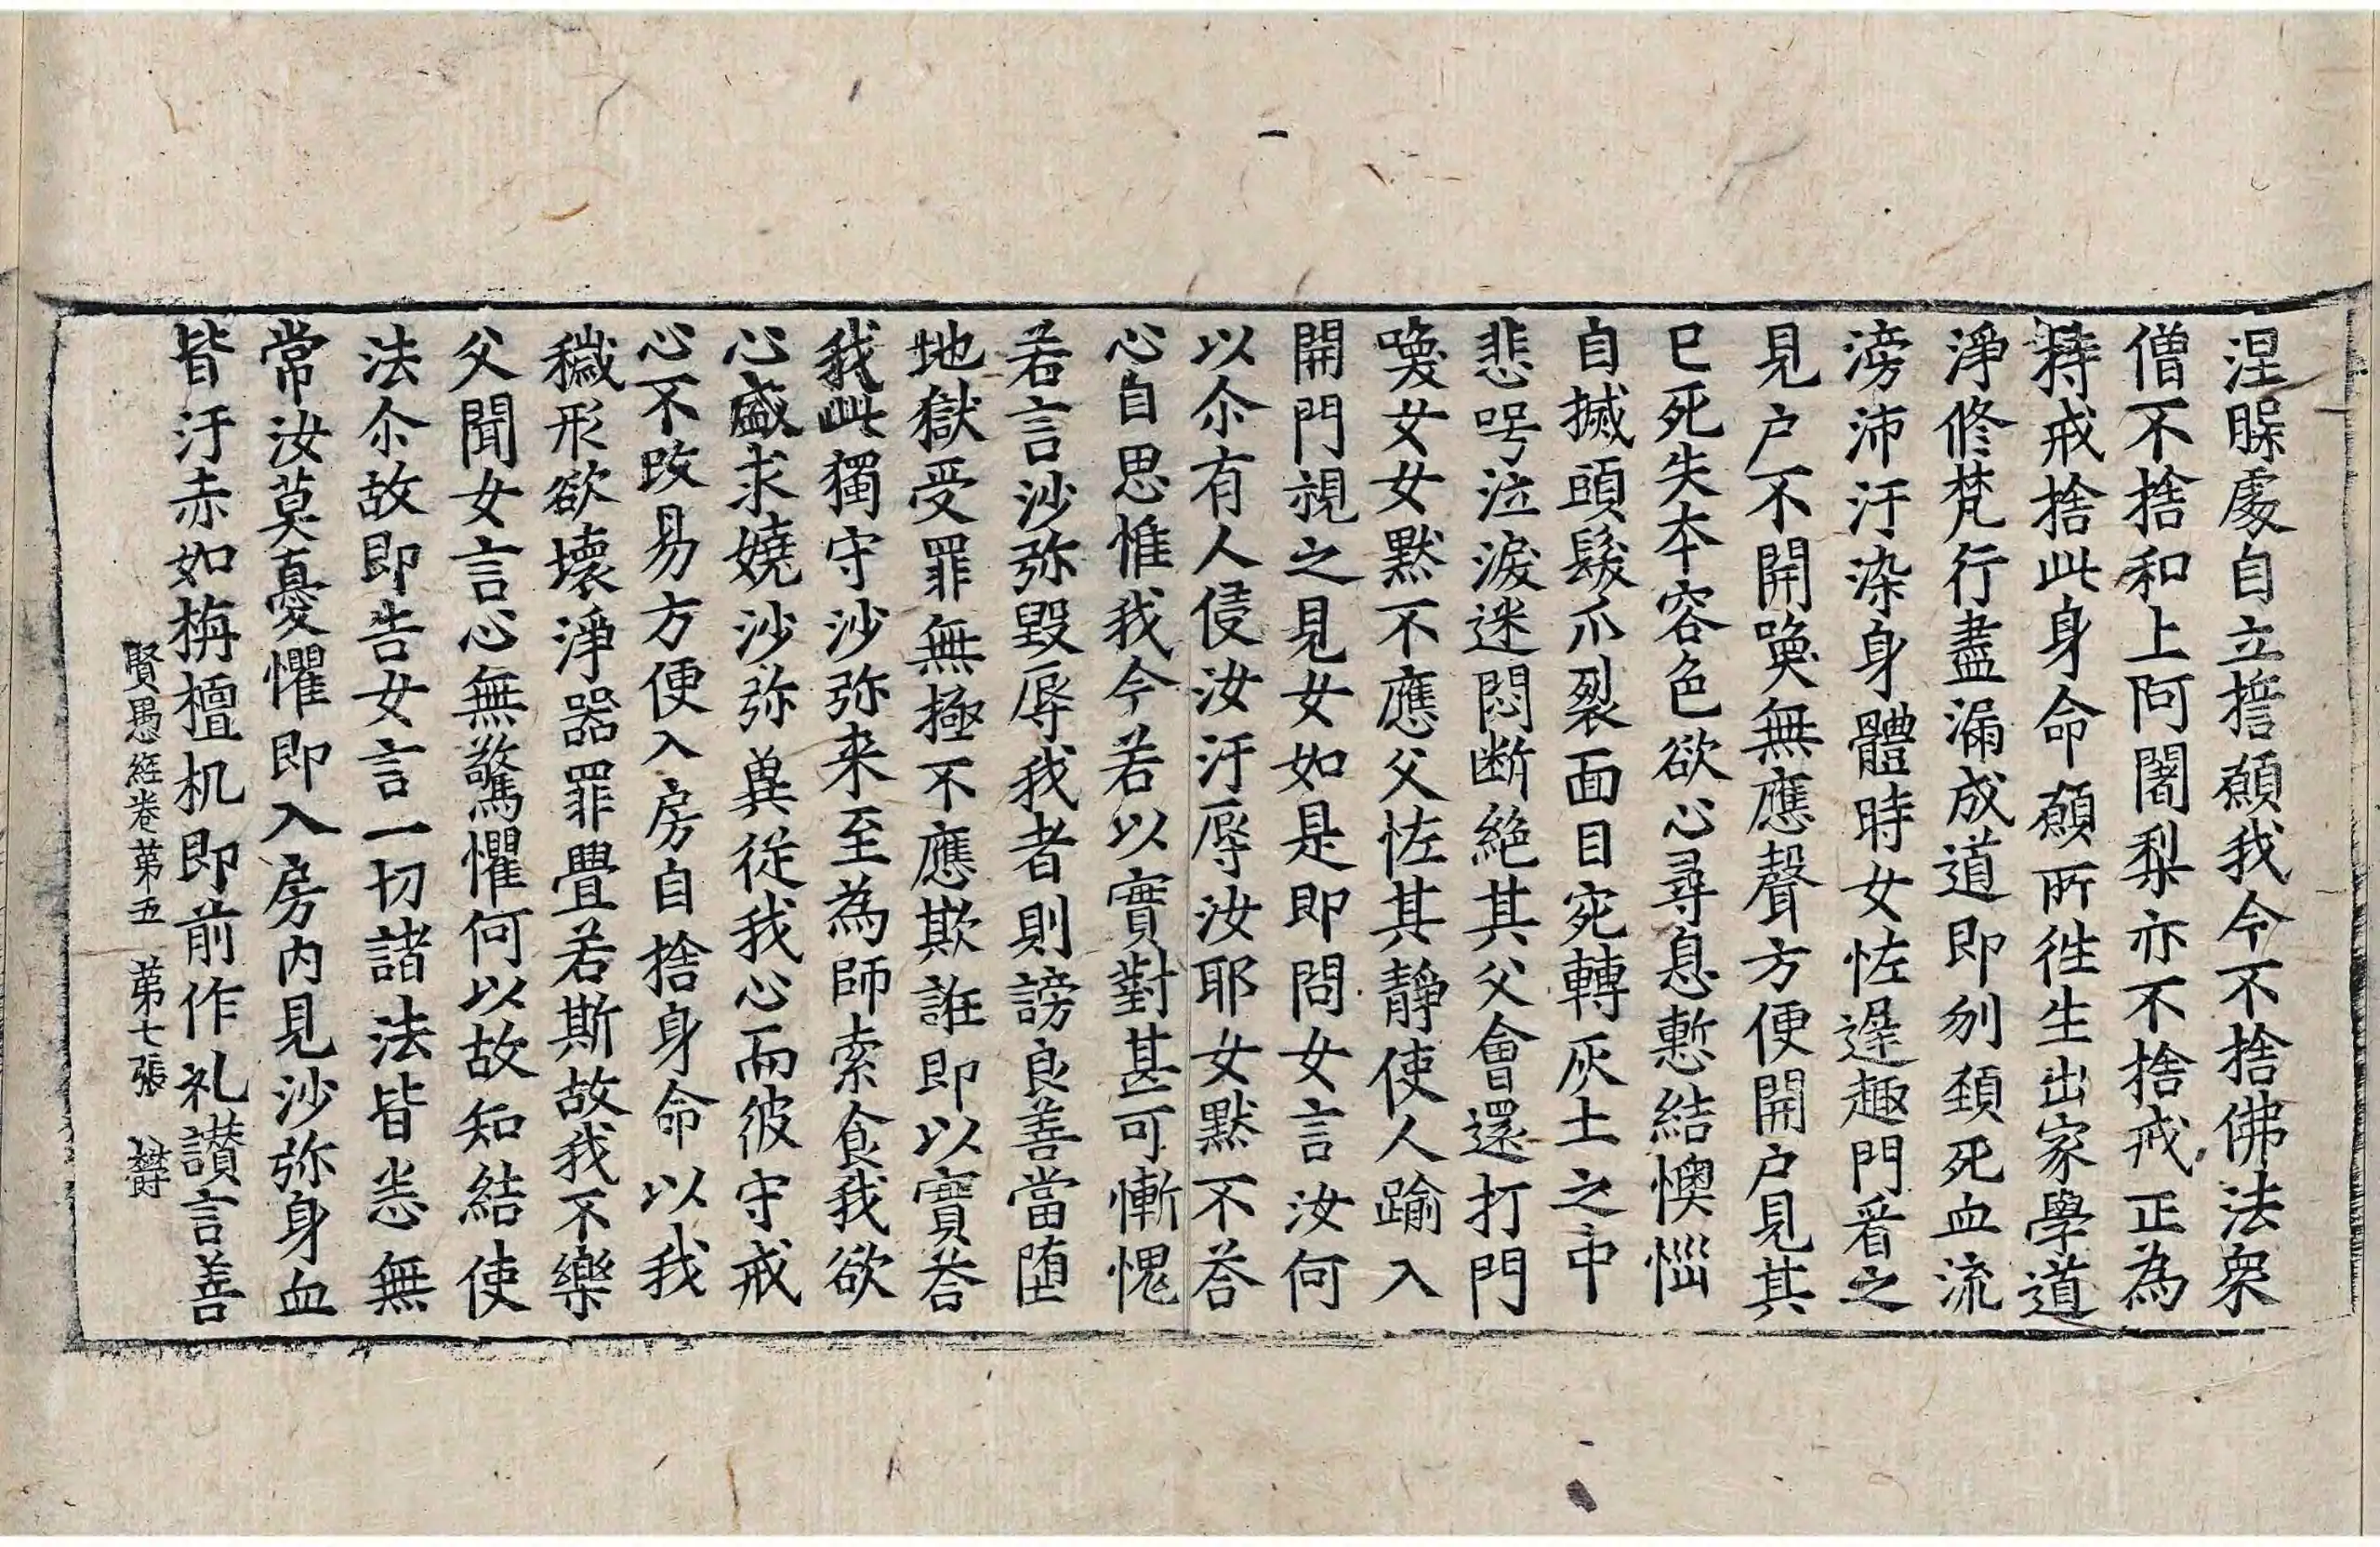 涅脲處自立誓願我今不捨佛法衆
僧不捨和上阿闍梨亦不捨戒正為
持戒捨此身命願所徃生出家學道
淨修梵行盡漏成道即刎頚死血流
滂沛汙染身體時女恠遟趣門看之
見户不開喚無應聲方便開户見其
已死失本容色欲心尋息慙結懊惱
自搣頭髮爪裂面目宛轉灰土之中
悲呺泣淚迷悶断絶其父會還打門
喚女女默不應父恠其靜使人踰入
開門視之見女如是即問女言汝何
以尒有人侵汝汙辱汝耶女默不荅
心自思惟我今若以實對甚可慚愧
若言沙弥毀辱我者則謗良善當墮
地獄受罪無極不應欺誑即以實荅
我此獨守沙弥来至為師索食我欲
心盛求嬈沙弥兾從我心而彼守戒
心不改易方便入房自捨身命以我
穢形欲壞淨器罪舋若斯故我不樂
父聞女言心無驚懼何以故知結使
法尒故即告女言一切諸法皆悉無
常汝莫憂懼即入房内見沙弥身血
皆汙赤如栴檀机即前作礼讃言善
賢愚經卷苐五　苐七張　欝